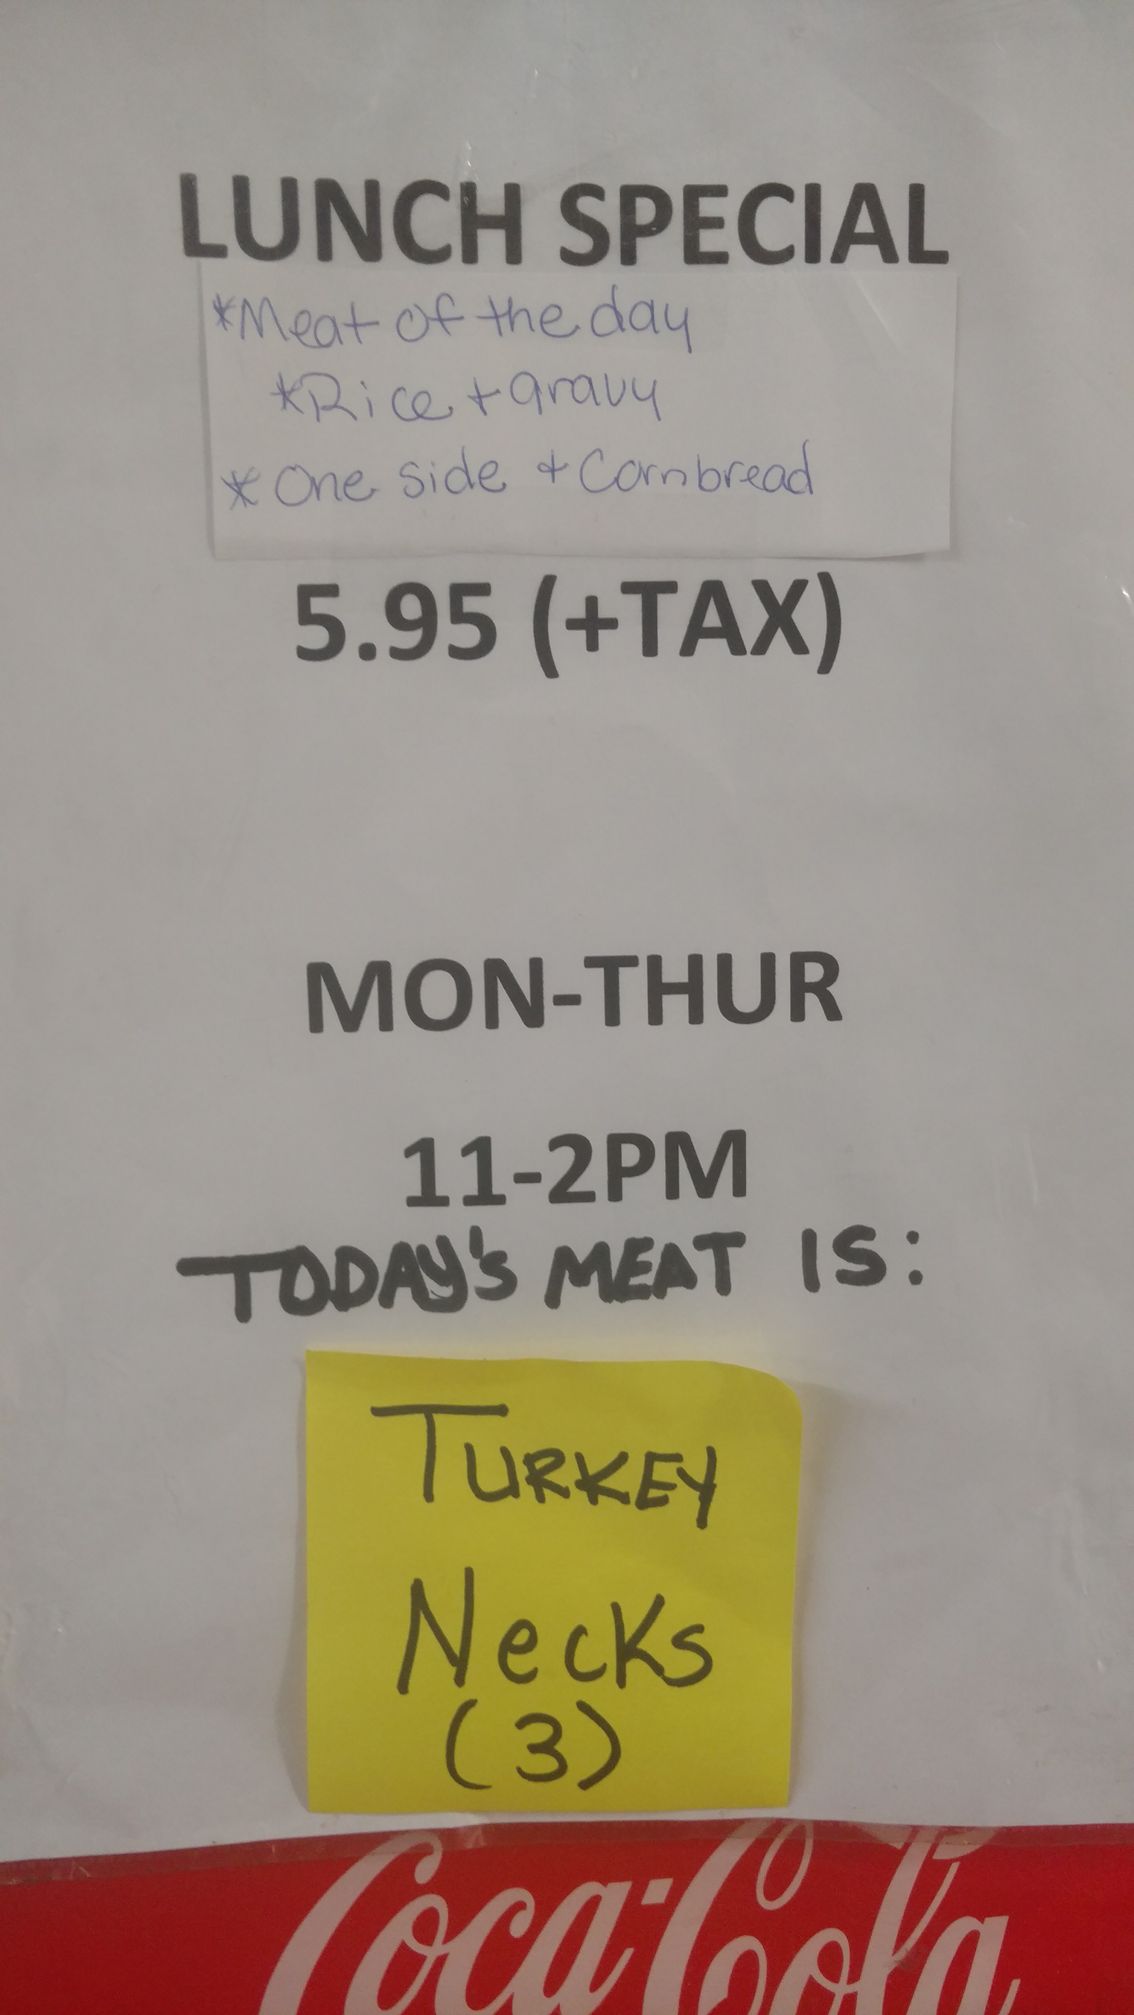 LUNCH SPECIAL
*Meat of the day
*Rice + gravy
* One side + Cornbread
5.95 (+TAX)
MON-THUR
11-2PM
TODAY'S MEAT IS:
TURKEY
Necks
(3)
Coca-Cola